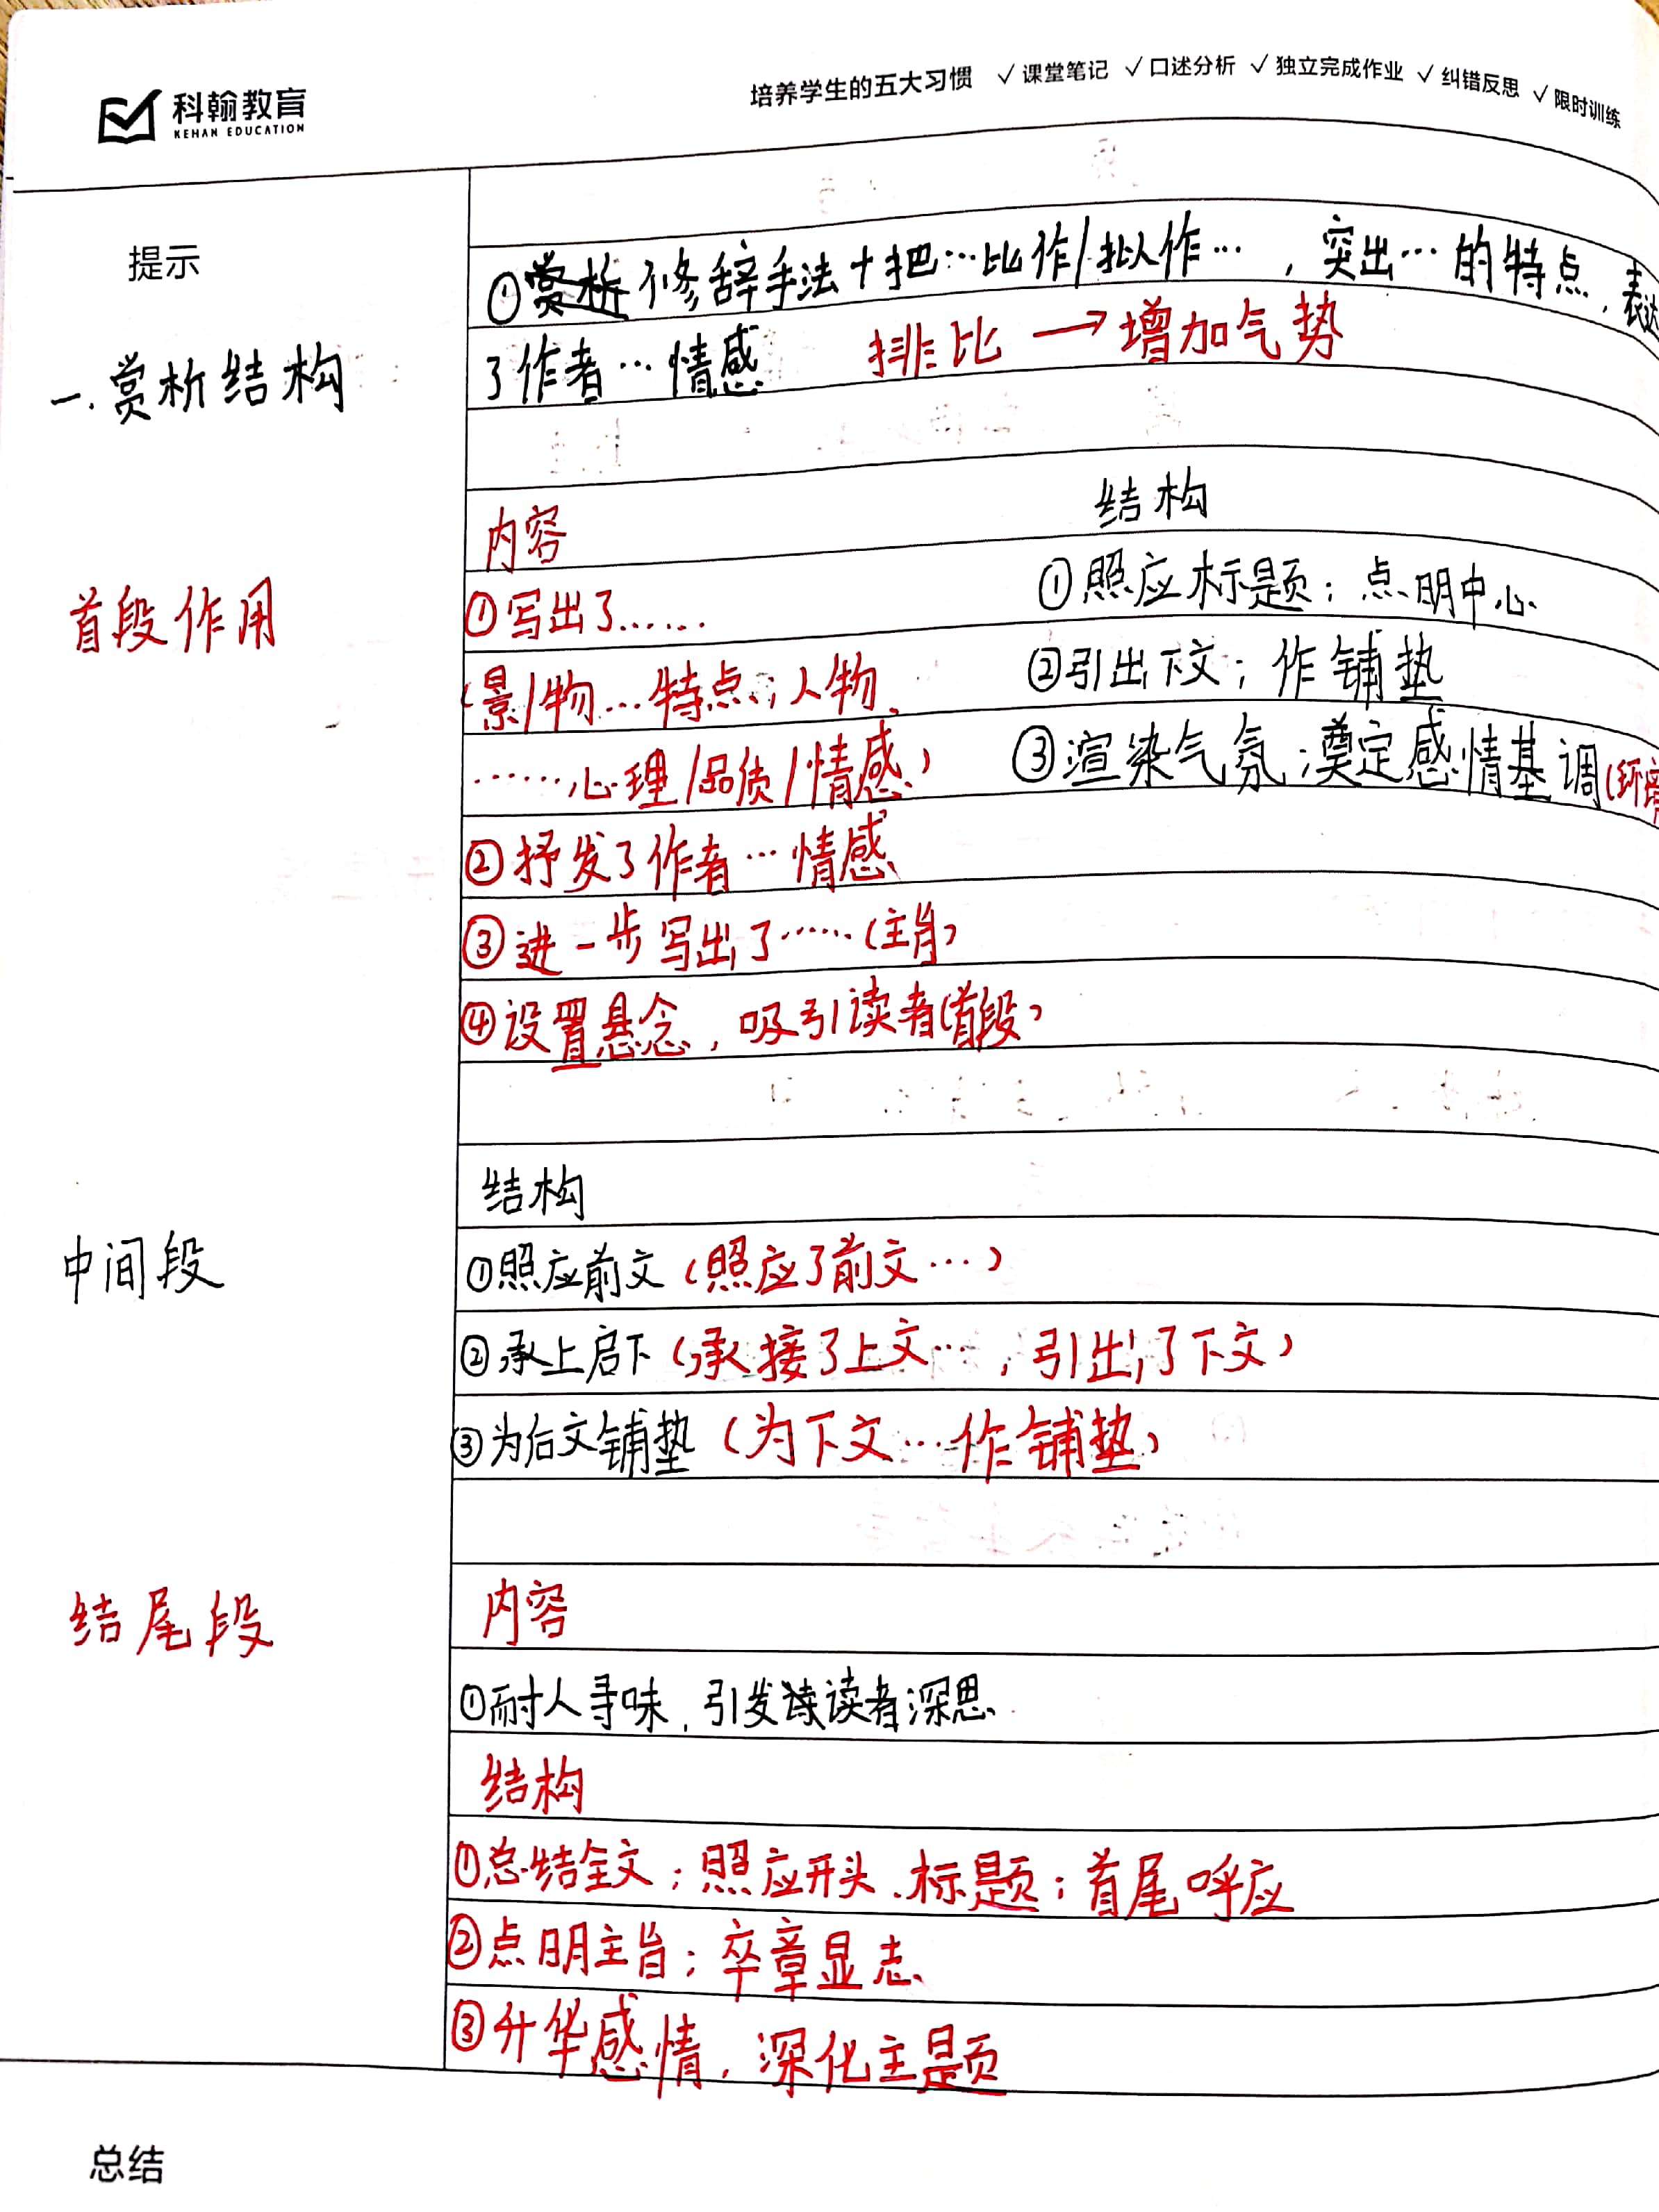 科翰教育
KEHAN EDUCATION
培养学生的五大习惯 ✓课堂笔记 ✓口述分析 ✓独立完成作业 ✓纠错反思 ✓限时训练
提示
一.赏析结构
①修辞手法+把…比作/拟作…，突出…的特点，表达
了作者…情感 排比→增加气势
首段作用
内容
①写出了……
(景/物…特点；人物
……心理/品质/情感)
②抒发了作者…情感
③进一步写出了……(主旨)
④设置悬念，吸引读者(首段)
结构
①照应标题；点明中心
②引出下文；作铺垫
③渲染气氛；奠定感情基调(环境
中间段
结构
①照应前文(照应了前文…)
②承上启下(承接了上文…，引出了下文)
③为后文铺垫(为下文…作铺垫)
结尾段
内容
①耐人寻味，引发读者深思
结构
①总结全文；照应开头、标题；首尾呼应
②点明主旨；卒章显志
③升华感情，深化主题
总结